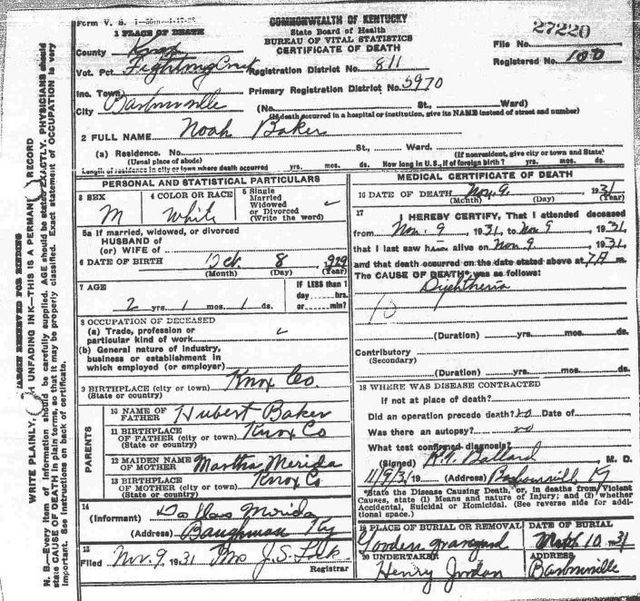 Form V. S. 1
COMMONWEALTH OF KENTUCKY
State Board of Health
BUREAU OF VITAL STATISTICS
CERTIFICATE OF DEATH
27220
File No.
Registered No. 100
1 PLACE OF DEATH
County Knox
Vot. Pct. Fighting Creek Registration District No. 811
Inc. Town Primary Registration District No. 5970
City Barbourville (No. St., Ward)
(If death occurred in a hospital or institution, give its NAME instead of street and number)
2 FULL NAME Noah Baker
(a) Residence. No. St., Ward.
(Usual place of abode) (If nonresident, give city or town and State)
Length of residence in city or town where death occurred yrs. mos. ds. How long in U.S., if of foreign birth? yrs. mos. ds.
PERSONAL AND STATISTICAL PARTICULARS
3 SEX
M
4 COLOR OR RACE
White
5 Single
Married
Widowed
or Divorced
(Write the word)
5a If married, widowed, or divorced
HUSBAND of
(or) WIFE of
6 DATE OF BIRTH Oct. 8 929
(Month) (Day) (Year)
7 AGE
2 yrs. 1 mos. 1 ds.
IF LESS than 1
day hrs.
or min.?
8 OCCUPATION OF DECEASED
(a) Trade, profession or
particular kind of work
(b) General nature of industry,
business or establishment in
which employed (or employer)
9 BIRTHPLACE (city or town) Knox Co
(State or country)
PARENTS
10 NAME OF
FATHER Hubert Baker
11 BIRTHPLACE
OF FATHER (city or town) Knox Co
(State or country)
12 MAIDEN NAME
OF MOTHER Martha Merida
13 BIRTHPLACE
OF MOTHER (city or town) Knox Co
(State or country)
14
(Informant) Dallas Merida
(Address) Baughman Ky
15
Filed Nov. 9 1931 Mrs J.S. Lock
Registrar
MEDICAL CERTIFICATE OF DEATH
16 DATE OF DEATH Nov. 9, 1931
(Month) (Day) (Year)
17
I HEREBY CERTIFY, That I attended deceased
from Nov. 9 1931, to Nov 9 1931
that I last saw him alive on Nov 9 1931
and that death occurred on the date stated above at 7A m.
The CAUSE OF DEATH was as follows:
Diphtheria
(Duration) yrs. mos. ds.
Contributory
(Secondary)
(Duration) yrs. mos. ds.
18 WHERE WAS DISEASE CONTRACTED
If not at place of death?
Did an operation precede death? no Date of
Was there an autopsy? no
What test confirmed diagnosis?
(Signed) Ballard M. D.
11/9/31, 19 (Address) Barbourville Ky
*State the Disease Causing Death, or, in deaths from Violent
Causes, state (1) Means and nature of Injury; and (2) whether
Accidental, Suicidal or Homicidal. (See reverse side for additional space.)
19 PLACE OF BURIAL OR REMOVAL
graveyard
DATE OF BURIAL
10 1931
20 UNDERTAKER
Henry Jordan
ADDRESS
Barbourville
MARGIN RESERVED FOR BINDING
WRITE PLAINLY, WITH UNFADING INK—THIS IS A PERMANENT RECORD
N. B.—Every item of information should be carefully supplied. AGE should be stated EXACTLY. PHYSICIANS should
state CAUSE OF DEATH in plain terms, so that it may be properly classified. Exact statement of OCCUPATION is very
important. See instructions on back of certificate.